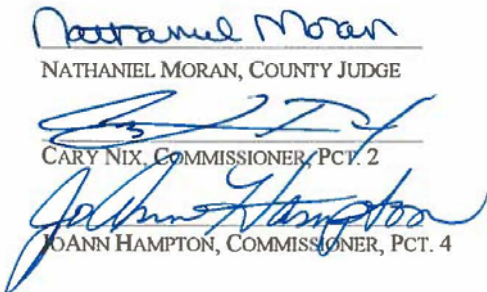 Nathaniel Moran
NATHANIEL MORAN, COUNTY JUDGE
CARY NIX, COMMISSIONER, PCT. 2
JoAnn Hampton
JOANN HAMPTON, COMMISSIONER, PCT. 4